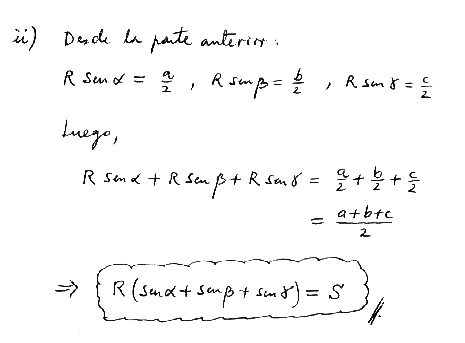 ii) Desde la parte anterior:
R sen α = a/2 , R sen β = b/2 , R sen γ = c/2
Luego,
R sen α + R sen β + R sen γ = a/2 + b/2 + c/2
= a+b+c/2
⇒ R(sen α + sen β + sen γ) = S